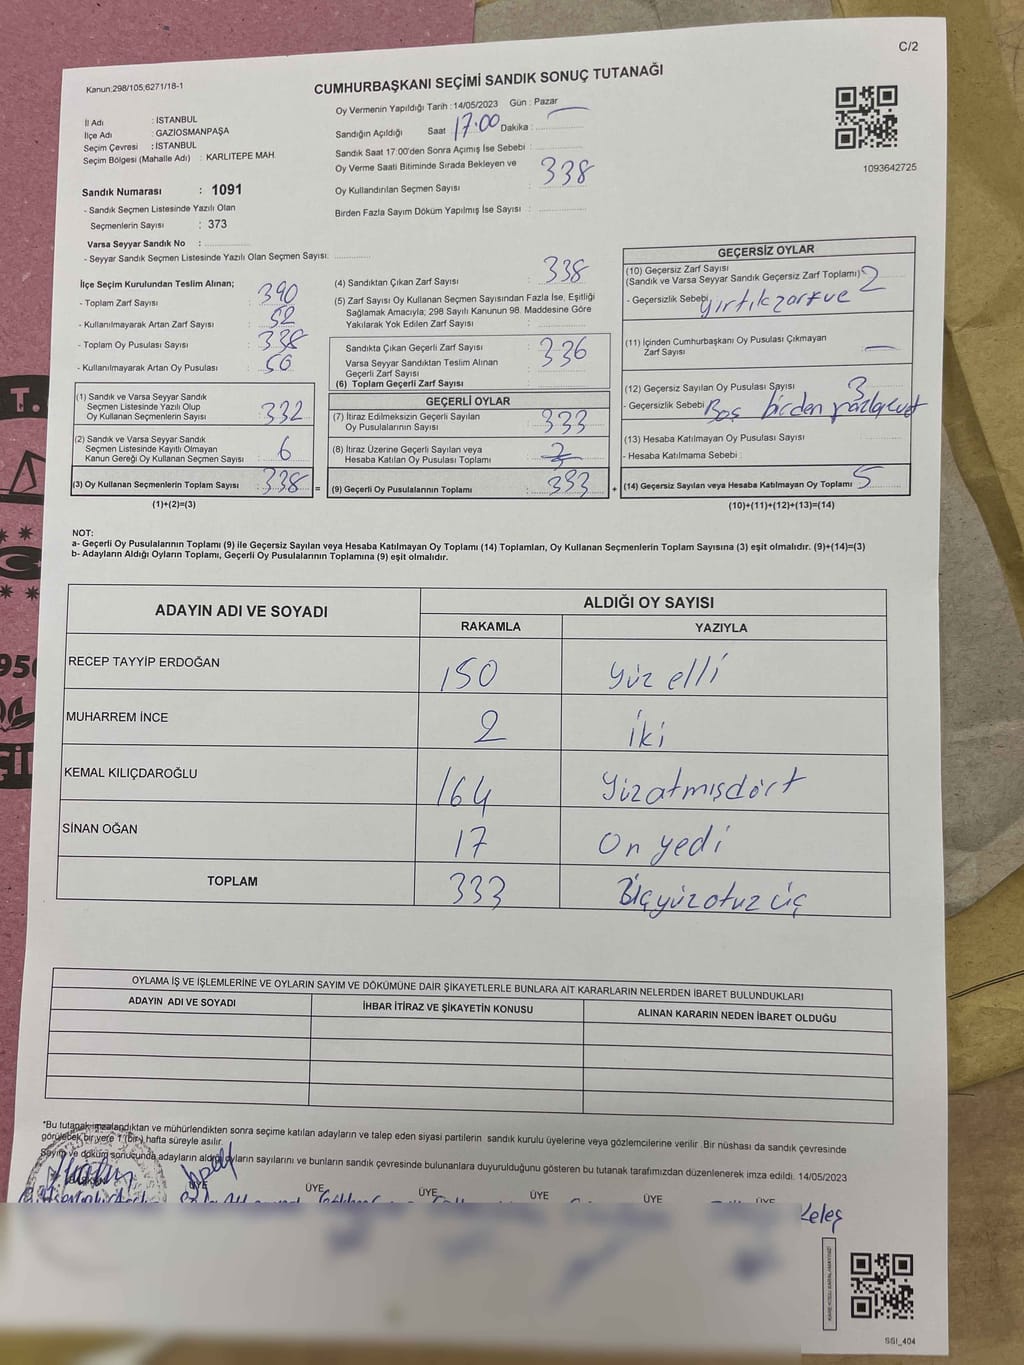 C/2
Kanun:298/105;6271/18-1
CUMHURBAŞKANI SEÇİMİ SANDIK SONUÇ TUTANAĞI
İl Adı : İSTANBUL
İlçe Adı : GAZİOSMANPAŞA
Seçim Çevresi : İSTANBUL
Seçim Bölgesi (Mahalle Adı) : KARLITEPE MAH
Sandık Numarası : 1091
- Sandık Seçmen Listesinde Yazılı Olan
Seçmenlerin Sayısı : 373
Varsa Seyyar Sandık No :
- Seyyar Sandık Seçmen Listesinde Yazılı Olan Seçmen Sayısı:
Oy Vermenin Yapıldığı Tarih : 14/05/2023 Gün : Pazar
Sandığın Açıldığı Saat 17:00 Dakika :
Sandık Saat 17:00'den Sonra Açımış İse Sebebi :
Oy Verme Saati Bitiminde Sırada Bekleyen ve
Oy Kullandırılan Seçmen Sayısı : 338
Birden Fazla Sayım Döküm Yapılmış İse Sayısı :
1093642725
İlçe Seçim Kurulundan Teslim Alınan;
- Toplam Zarf Sayısı : 390
- Kullanılmayarak Artan Zarf Sayısı : 52
- Toplam Oy Pusulası Sayısı : 338
- Kullanılmayarak Artan Oy Pusulası : 50
(1) Sandık ve Varsa Seyyar Sandık
Seçmen Listesinde Yazılı Olup
Oy Kullanan Seçmenlerin Sayısı : 332
(2) Sandık ve Varsa Seyyar Sandık
Seçmen Listesinde Kayıtlı Olmayan
Kanun Gereği Oy Kullanan Seçmen Sayısı : 6
(3) Oy Kullanan Seçmenlerin Toplam Sayısı : 338 =
(1)+(2)=(3)
(4) Sandıktan Çıkan Zarf Sayısı : 338
(5) Zarf Sayısı Oy Kullanan Seçmen Sayısından Fazla İse, Eşitliği
Sağlamak Amacıyla; 298 Sayılı Kanunun 98. Maddesine Göre
Yakılarak Yok Edilen Zarf Sayısı :
Sandıkta Çıkan Geçerli Zarf Sayısı : 336
Varsa Seyyar Sandıktan Teslim Alınan
Geçerli Zarf Sayısı :
(6) Toplam Geçerli Zarf Sayısı :
GEÇERLİ OYLAR
(7) İtiraz Edilmeksizin Geçerli Sayılan
Oy Pusulalarının Sayısı : 333
(8) İtiraz Üzerine Geçerli Sayılan veya
Hesaba Katılan Oy Pusulası Toplamı :
(9) Geçerli Oy Pusulalarının Toplamı : 333 +
GEÇERSİZ OYLAR
(10) Geçersiz Zarf Sayısı
(Sandık ve Varsa Seyyar Sandık Geçersiz Zarf Toplamı) 2
- Geçersizlik Sebebi yırtık zarf ve
(11) İçinden Cumhurbaşkanı Oy Pusulası Çıkmayan
Zarf Sayısı —
(12) Geçersiz Sayılan Oy Pusulası Sayısı 3
- Geçersizlik Sebebi Boş birden
(13) Hesaba Katılmayan Oy Pusulası Sayısı
- Hesaba Katılmama Sebebi
(14) Geçersiz Sayılan veya Hesaba Katılmayan Oy Toplamı 5
(10)+(11)+(12)+(13)=(14)
NOT:
a- Geçerli Oy Pusulalarının Toplamı (9) ile Geçersiz Sayılan veya Hesaba Katılmayan Oy Toplamı (14) Toplamları, Oy Kullanan Seçmenlerin Toplam Sayısına (3) eşit olmalıdır. (9)+(14)=(3)
b- Adayların Aldığı Oyların Toplamı, Geçerli Oy Pusulalarının Toplamına (9) eşit olmalıdır.
ADAYIN ADI VE SOYADI
ALDIĞI OY SAYISI
RAKAMLA YAZIYLA
RECEP TAYYİP ERDOĞAN 150 Yüz elli
MUHARREM İNCE 2 iki
KEMAL KILIÇDAROĞLU 164 Yüzatmışdört
SİNAN OĞAN 17 On yedi
TOPLAM 333 üçyüzotuz üç
OYLAMA İŞ VE İŞLEMLERİNE VE OYLARIN SAYIM VE DÖKÜMÜNE DAİR ŞİKAYETLERLE BUNLARA AİT KARARLARIN NELERDEN İBARET BULUNDUKLARI
ADAYIN ADI VE SOYADI İHBAR İTİRAZ VE ŞİKAYETİN KONUSU ALINAN KARARIN NEDEN İBARET OLDUĞU
*Bu tutanak imzalandıktan ve mühürlendikten sonra seçime katılan adayların ve talep eden siyasi partilerin sandık kurulu üyelerine veya gözlemcilerine verilir. Bir nüshası da sandık çevresinde
görülebilek bir yere 1 (bir) hafta süreyle asılır.
Sayım ve döküm sonucunda adayların aldığı oyların sayılarını ve bunların sandık çevresinde bulunanlara duyurulduğunu gösteren bu tutanak tarafımızdan düzenlenerek imza edildi. 14/05/2023
ÜYE ÜYE ÜYE ÜYE ÜYE ÜYE
Keleş
SSI_404